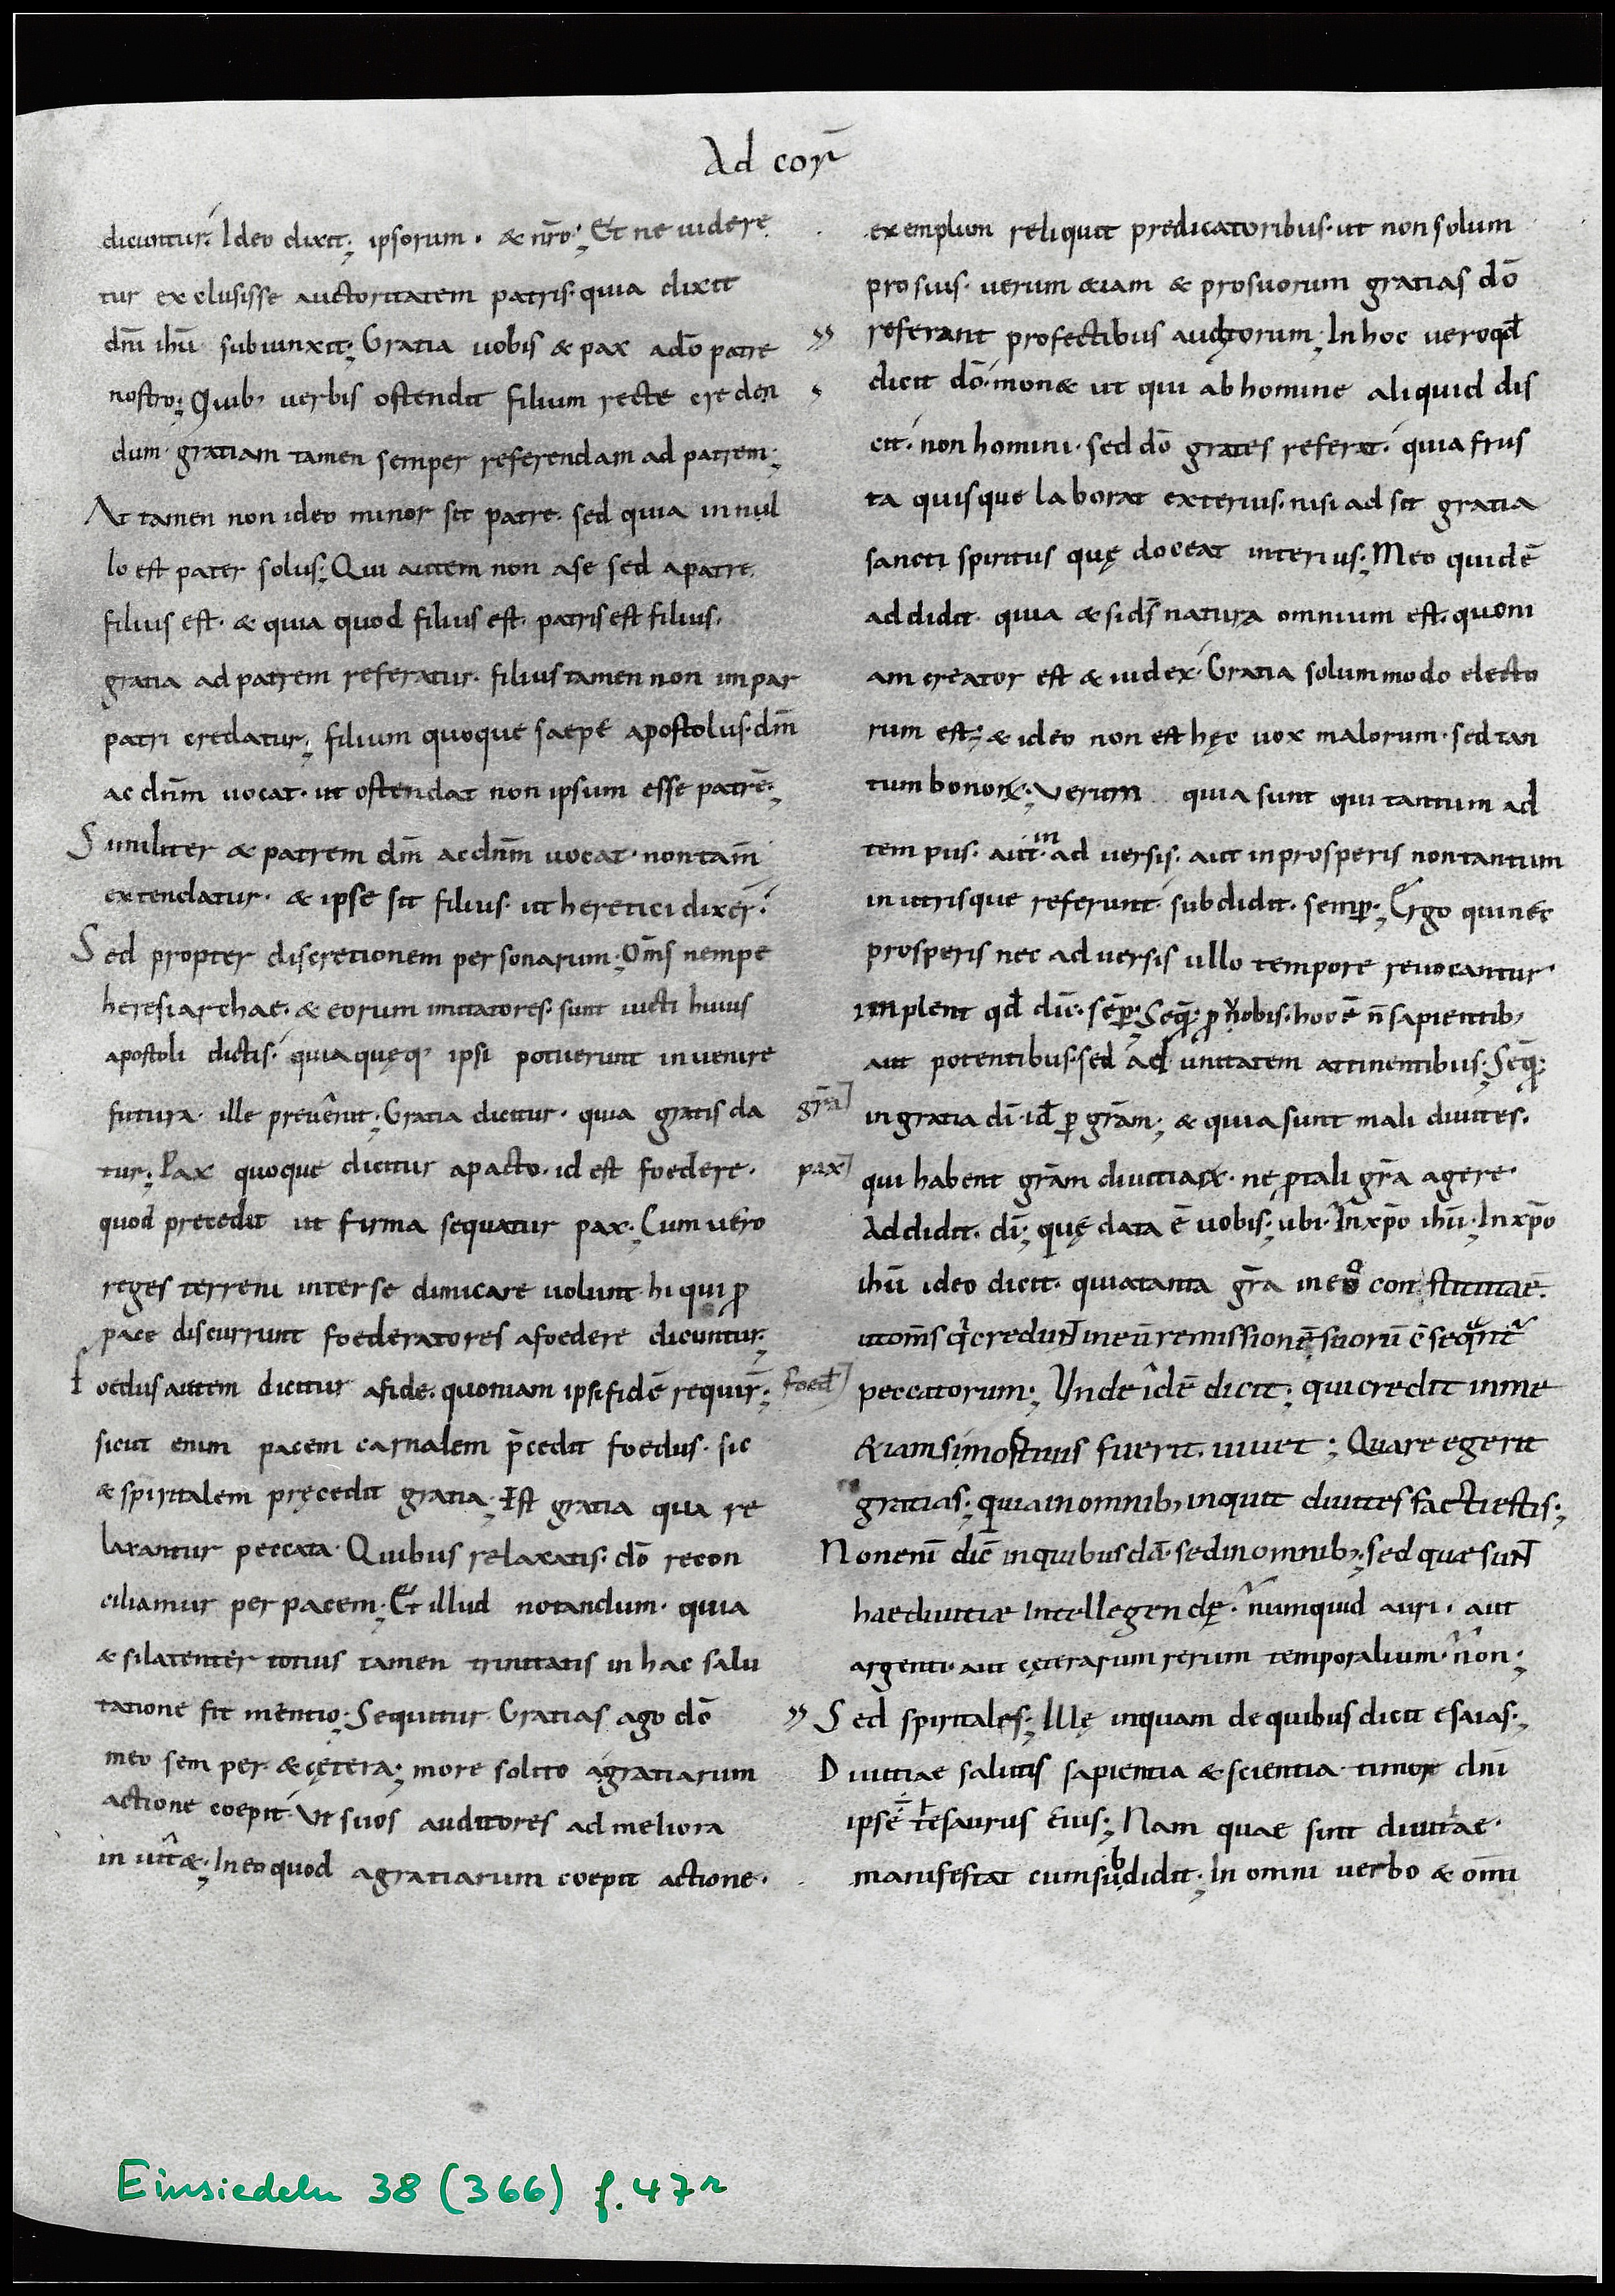 Ad cor̄
dicuntur. Ideo dixit; ipsorum. & nr̄o; Et ne uidere
tur exclusisse auctoritatem patris. quia dixit
dn̄m ihū subiunxit; Gratia uobis & pax a dō patre
nostro; Quib, uerbis ostendit filium recte creden
dum. gratiam tamen semper referendam ad patrem;
At tamen non ideo minor sit patre. sed quia in nul
lo est pater solus; Qui autem non a se sed a patre
filius est. & quia quod filius est. patris est filius.
gratia ad patrem referatur. filius tamen non impar
patri credatur; filium quoque saepe apostolus. dm̄
ac dn̄m uocat. ut ostendat non ipsum esse patrē;
Similiter & patrem dm̄ ac dn̄m uocat. non tam̄
extendatur. & ipse sit filius. ut heretici dixer̄.
Sed propter discretionem personarum; Om̄s nempe
heresiarchae. & eorum imitatores. sunt uicti huius
apostoli dictis. quia quęq, ipsi potuerunt inuenire
futura. ille preuenit; Gratia dicitur. quia gratis da
grā
tur; Pax quoque dicitur a pacto. id est foedere.
pax
quod precedit ut firma sequatur pax; Cum uero
reges terreni inter se dimicare uolunt. hi qui ꝓ
pace discurrunt foederatores a foedere dicuntur;
Foedus autem dicitur a fide. quoniam ipsi fidē requir̄;
foed
sicut enim pacem carnalem p̄cedit foedus. sic
& spiritalem pręcedit gratia; Est gratia qua re
laxantur peccata. Quibus relaxatis. dō recon
ciliamur per pacem; Et illud notandum. quia
& si latenter totius tamen trinitatis in hac salu
tatione fit mentio; Sequitur. Gratias ago dō
meo semper. & cętera; more solito a gratiarum
actione coepit. Ut suos auditores ad meliora
inuit&; In eo quod a gratiarum coepit actione.
exemplum reliquit predicatoribus. ut non solum
pro suis. uerum &iam & pro suorum gratias dō
referant profectibus auditorum; In hoc uero qd̄
dicit dō. mon& ut qui ab homine aliquid dis
cit. non homini. sed dō grates referat. quia frus
ta quisque laborat exterius. nisi adsit gratia
sancti spiritus quę doceat interius; Meo quidē
addidit. quia & si ds̄ natura omnium est. quoni
am creator est & iudex. Gratia solummodo electo
rum est; & ideo non est hęc uox malorum. sed tan
tum bonorꝝ; Verum quia sunt qui tantum ad
tempus. aut in aduersis. aut in prosperis non tantum
in utrisque referunt. subdidit. semp; Ergo qui nec
prosperis nec aduersis ullo tempore reuocantur
implent qd̄ dic̄. sēp; Seq̄; ꝓ uobis. hoc ē n̄ sapientib,
aut potentibus. sed ad unitatem attinentibus; Seq̄;
in gratia dī. id̄ ꝑ grām; & quia sunt mali diuites.
qui habent grām diuitiarꝝ. ne ꝓ tali grā agere.
Addidit. dī; quę data ē uobis; ubi. In xp̄o ihū; In xp̄o
ihū ideo dicit. quia tanta grā in eo constituta ē.
ut om̄s qͥ credunt in eū remissionē suorū c̄sequant̄
peccatorum; Unde idē dicit; qui credit in me
&iam si mortuus fuerit. uiuet; Quare egerit
gratias; quia in omnib, inquit diuites facti estis;
Non enī dic̄ in quibusdā. sed in omnib;. sed quae sunt
hae diuitiae intellegendę. numquid auri. aut
argenti. aut cęterarum rerum temporalium. non;
Sed spiritales; Illę inquam de quibus dicit esaias;
Diuitiae salutis sapientia & scientia. timor dn̄i
ipse ē tesaurus eius; Nam quae sint diuitiae.
manifestat cum subdidit; In omni uerbo & om̄i
Einsiedeln 38 (366) f. 47r